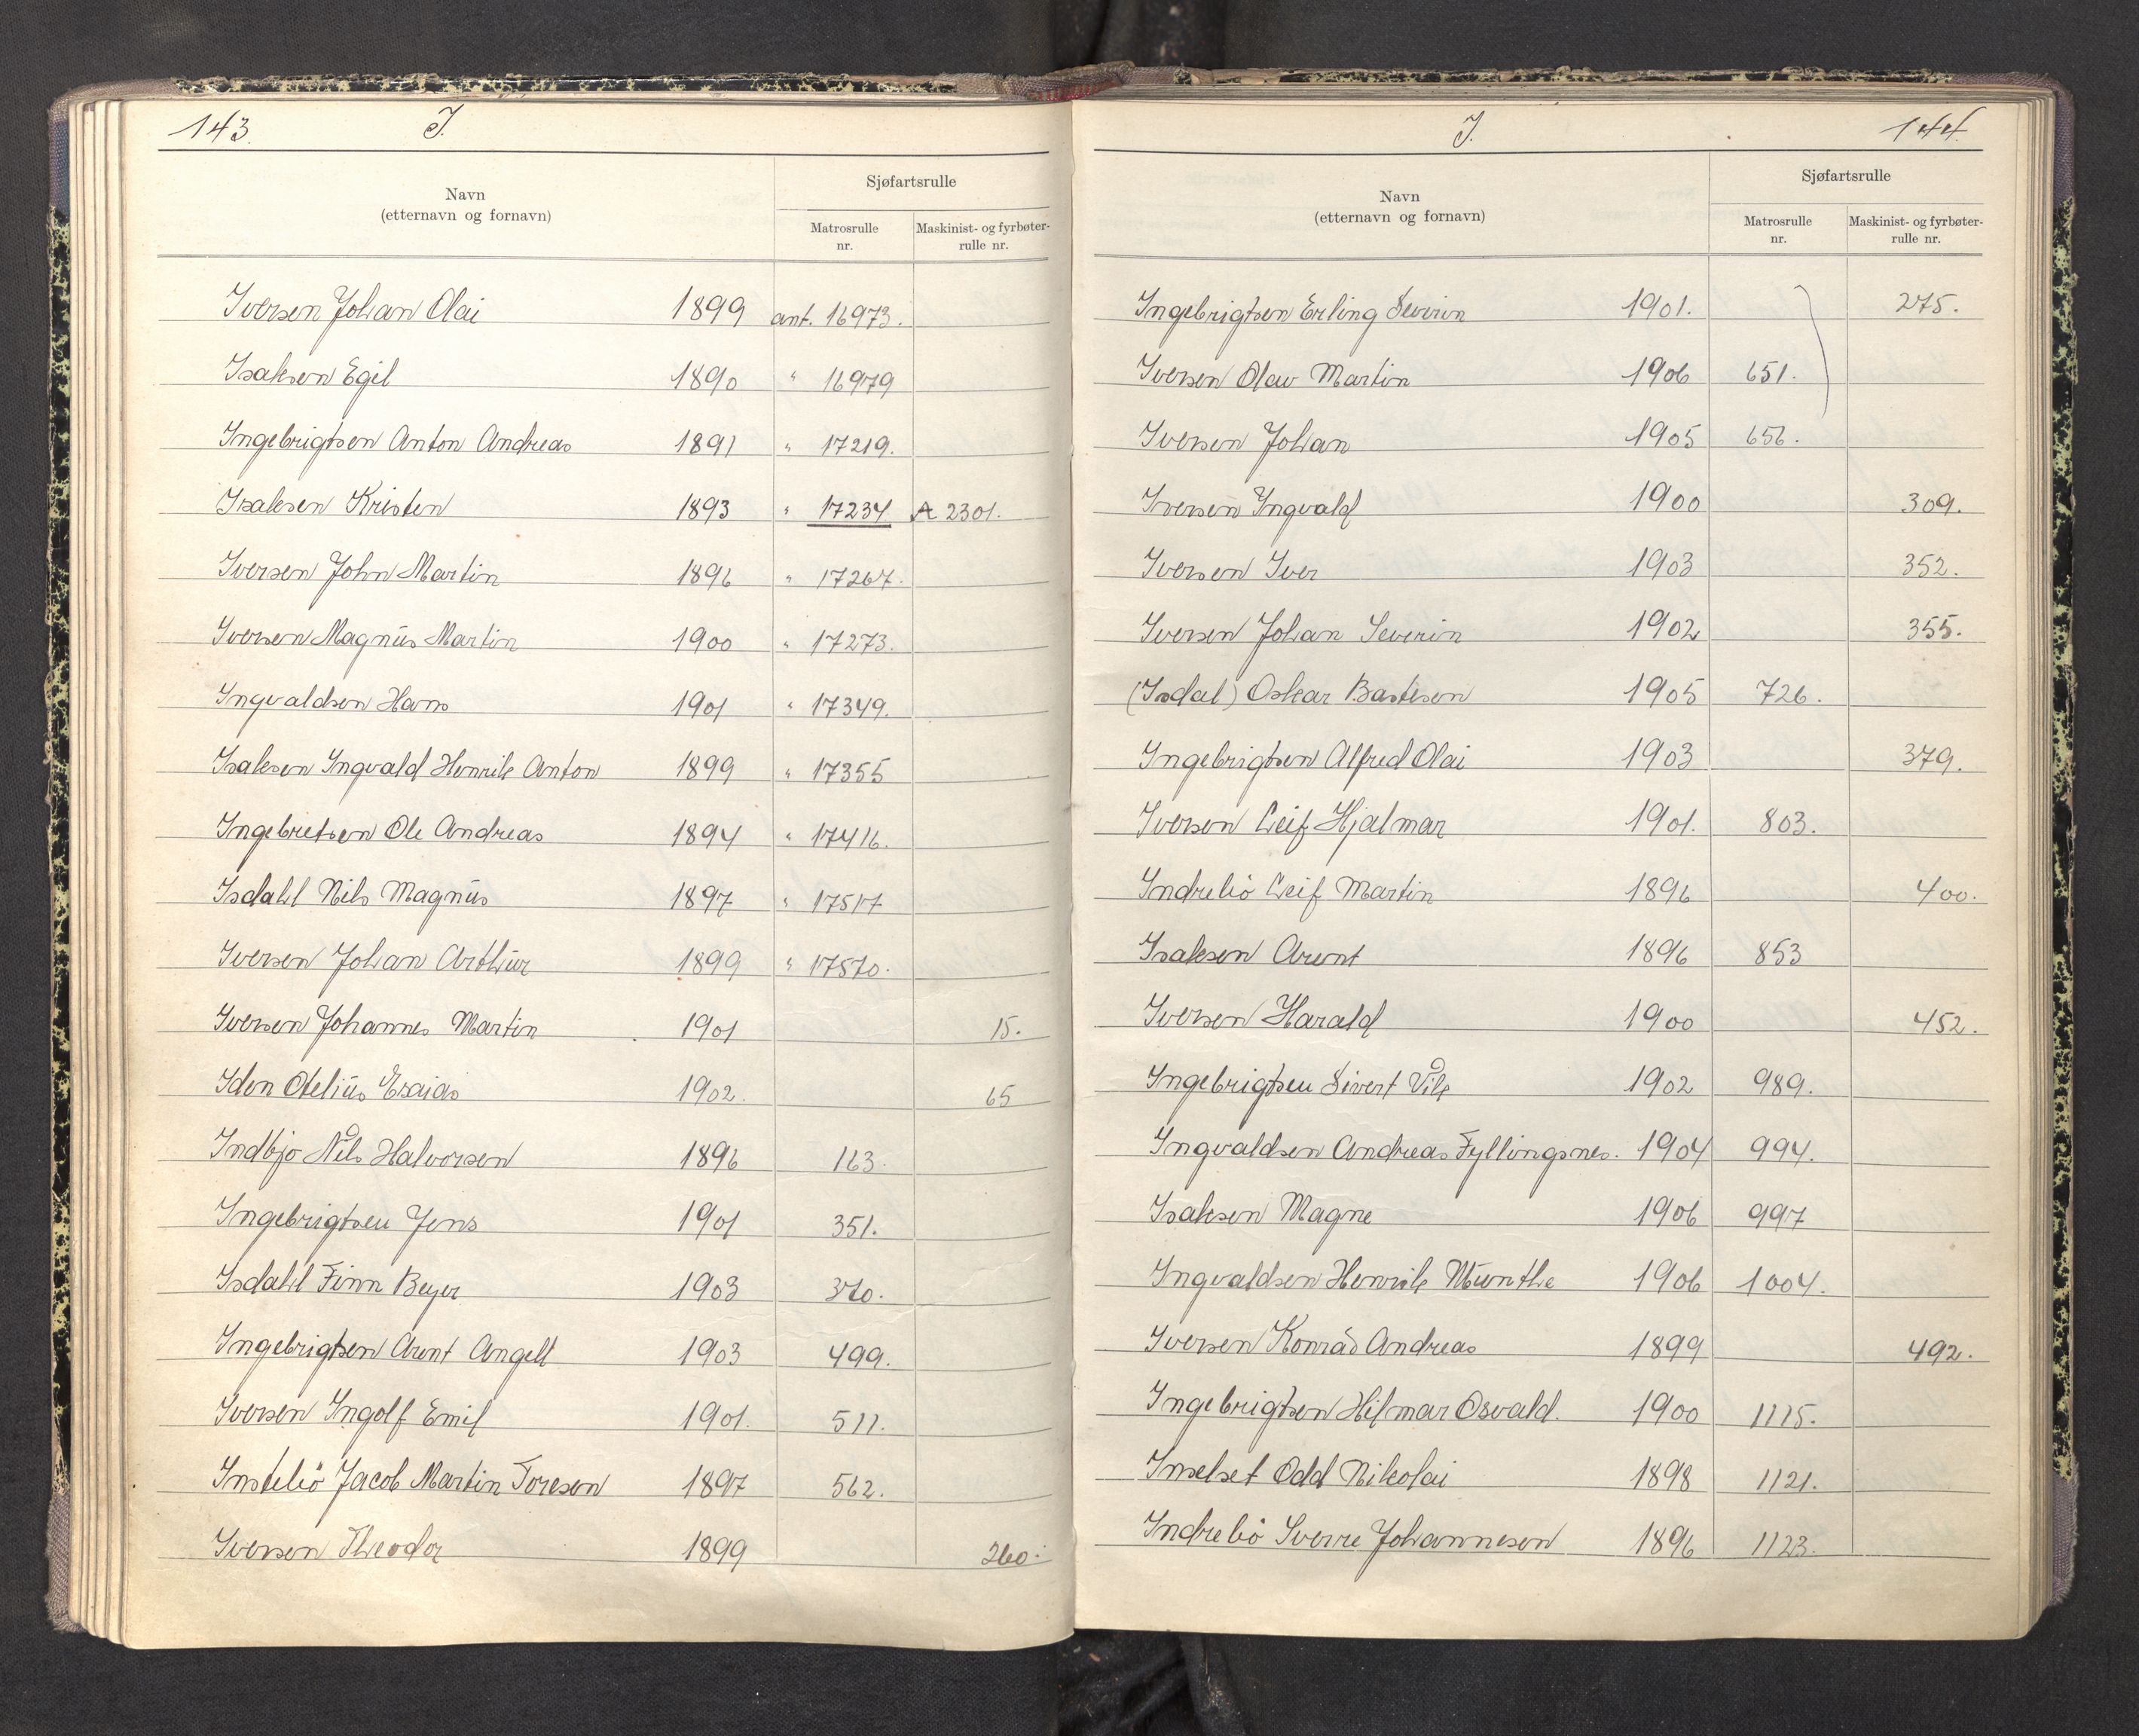 143. I.
Navn
(etternavn og fornavn)
Sjøfartsrulle
Matrosrulle
nr.
Maskinist- og fyrbøter-
rulle nr.
Iversen Johan Olai 1899 ant. 16973.
Isaksen Egil 1890 " 16979
Ingebrigtsen Anton Andreas 1891 " 17219.
Isaksen Kristen 1893 " 17234 A 2301.
Iversen John Martin 1896 " 17267.
Iversen Magnus Martin 1900 " 17273.
Ingvaldsen Hans 1901 " 17349.
Isaksen Ingvald Henrik Anton 1899 " 17355
Ingebretsen Ole Andreas 1894 " 17416.
Isdahl Nils Magnus 1897 " 17517
Iversen Johan Arthur 1899 " 17570.
Iversen Johannes Martin 1901 15.
Iden Otelius Esaias 1902. 65
Indbjo Nils Halvorsen 1896 163.
Ingebrigtsen Jens 1901 351.
Isdahl Finn Beyer 1903 370.
Ingebrigtsen Arent Angell 1903 499.
Iversen Ingolf Emil 1901. 511.
Instebö Jacob Martin Toresen 1897 562.
Iversen Theodor 1899 260.
I. 144.
Navn
(etternavn og fornavn)
Sjøfartsrulle
Matrosrulle
nr.
Maskinist- og fyrbøter-
rulle nr.
Ingebrigtsen Erling Severin 1901. 275.
Iversen Olav Martin 1906 651.
Iversen Johan 1905 656.
Iversen Ingvald 1900 309.
Iversen Iver 1903 352.
Iversen Johan Severin 1902 355.
(Isdal) Oskar Bastesen 1905 726.
Ingebrigtsen Alfred Olai 1903 379.
Iversen Leif Hjalmar 1901. 803.
Indrebö Leif Martin 1896 400.
Isaksen Arent 1896 853
Iversen Harald 1900 452.
Ingebrigtsen Sivert Vik 1902 989.
Ingvaldsen Andreas Fyllingsnes. 1904 994.
Isaksen Magne 1906 997
Ingvaldsen Henrik Munthe 1906 1004.
Iversen Konrad Andreas 1899 492.
Ingebrigtsen Hilmar Osvald. 1900 1115.
Inselset Odd Nikolai 1898 1121.
Indrebö Sverre Johannesen 1896 1123.